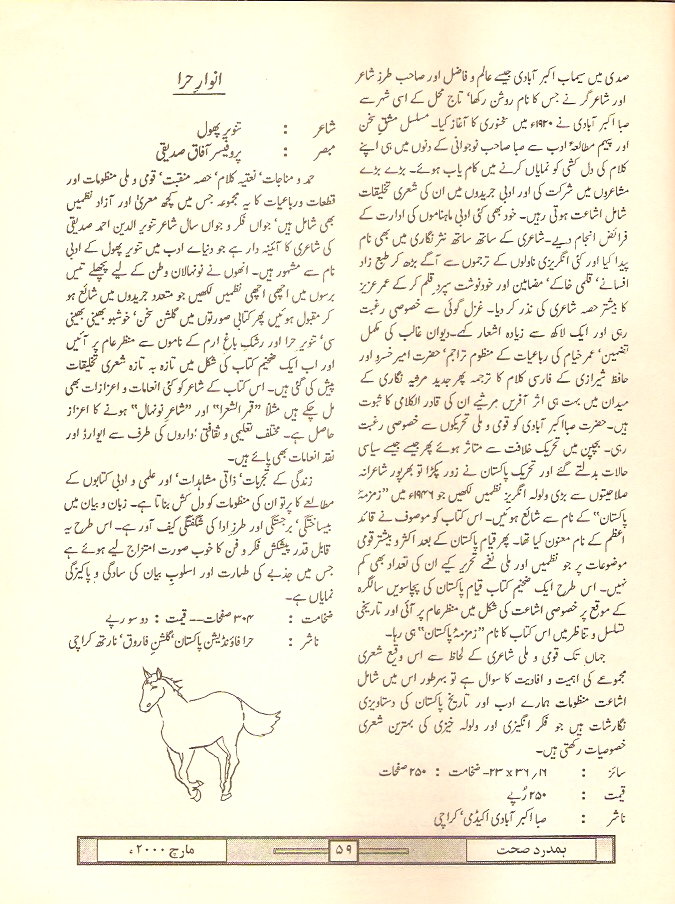 صدی میں سیماب اکبر آبادی جیسے عالم و فاضل اور صاحب طرز شاعر
اور شاعر گر نے جس کا نام روشن رکھا‘ تاج محل کے اسی شہر سے
صبا اکبر آبادی نے ۱۹۲۰ء میں سخنوری کا آغاز کیا۔ مسلسل مشق سخن
اور پیہم مطالعۂ ادب سے صبا صاحب نوجوانی کے دنوں میں ہی اپنے
کلام کی دل کشی کو نمایاں کرنے میں کام یاب ہوئے۔ بڑے بڑے
مشاعروں میں شرکت کی اور ادبی جریدوں میں ان کی شعری تخلیقات
شامل اشاعت ہوتی رہیں۔ خود بھی کئی ادبی ماہناموں کی ادارت کے
فرائض انجام دیے۔ شاعری کے ساتھ ساتھ نثر نگاری میں بھی نام
پیدا کیا اور کئی انگریزی ناولوں کے ترجموں سے آگے بڑھ کر طبع زاد
افسانے‘ قلمی خاکے‘ مضامین اور خودنوشت سپرد قلم کر کے عمر عزیز
کا بیشتر حصہ شاعری کی نذر کر دیا۔ غزل گوئی سے خصوصی رغبت
رہی اور ایک لاکھ سے زیادہ اشعار کہے۔ دیوان غالب کی مکمل
تضمین‘ عمر خیام کی رباعیات کے منظوم تراجم‘ حضرت امیر خسرو اور
حافظ شیرازی کے فارسی کلام کا ترجمہ پھر جدید مرثیہ نگاری کے
میدان میں بہت ہی اثر آفریں مرثیے ان کی قادر الکلامی کا ثبوت
ہیں۔ حضرت صبا اکبر آبادی کو قومی و ملی تحریکوں سے خصوصی رغبت
رہی۔ بچپن میں تحریک خلافت سے متاثر ہوئے پھر جیسے جیسے سیاسی
حالات بدلتے گئے اور تحریک پاکستان نے زور پکڑا تو بھرپور شاعرانہ
صلاحیتوں سے بڑی ولولہ انگیز نظمیں لکھیں جو ۱۹۴۶ء میں ”زمزمۂ
پاکستان“ کے نام سے شائع ہوئیں۔ اس کتاب کو موصوف نے قائد
اعظم کے نام معنون کیا تھا۔ پھر قیام پاکستان کے بعد اکثر و بیشتر قومی
موضوعات پر جو نظمیں اور ملی نغمے تحریر کیے ان کی تعداد بھی کم
نہیں۔ اس طرح ایک ضخیم کتاب قیام پاکستان کی پچاسویں سالگرہ
کے موقع پر خصوصی اشاعت کی شکل میں منظر عام پر آئی اور تاریخی
تسلسل و تناظر میں اس کتاب کا نام ”زمزمۂ پاکستان“ ہی رہا۔
جہاں تک قومی و ملی شاعری کے لحاظ سے اس وقیع شعری
مجموعے کی اہمیت و افادیت کا سوال ہے تو بہرطور اس میں شامل
اشاعت منظومات ہمارے ادب اور تاریخ پاکستان کی دستاویزی
نگارشات ہیں جو فکر انگیزی اور ولولہ خیزی کی بہترین شعری
خصوصیات رکھتی ہیں۔
سائز : ۱۶/۳۶x۲۳- ضخامت : ۲۵۰ صفحات
قیمت : ۲۵۰ رُپے
ناشر : صبا اکبر آبادی اکیڈمی‘ کراچی
انوارِ حرا
شاعر : تنویر پھول
مبصر : پروفیسر آفاق صدیقی
حمد و مناجات‘ نعتیہ کلام‘ حصہ منقبت‘ قومی و ملی منظومات اور
قطعات و رباعیات کا یہ مجموعہ جس میں کچھ معریٰ اور آزاد نظمیں
بھی شامل ہیں‘ جواں فکر و جواں سال شاعر تنویر الدین احمد صدیقی
کی شاعری کا آئینہ دار ہے جو دنیاے ادب میں تنویر پھول کے ادبی
نام سے مشہور ہیں۔ انھوں نے نونہالان وطن کے لیے پچھلے تیس
برسوں میں اچھی اچھی نظمیں لکھیں جو متعدد جریدوں میں شائع ہو
کر مقبول ہوئیں پھر کتابی صورتوں میں گلشن سخن‘ خوشبو بھینی بھینی
سی‘ تنویر حرا اور رشک باغ ارم کے ناموں سے منظر عام پر آئیں
اور اب ایک ضخیم کتاب کی شکل میں تازہ بہ تازہ شعری تخلیقات
پیش کی گئی ہیں۔ اس کتاب کے شاعر کو کئی انعامات و اعزازات بھی
مل چکے ہیں مثلاً ”قمر الشعرا“ اور ”شاعر نونہال“ ہونے کا اعزاز
حاصل ہے۔ مختلف تعلیمی و ثقافتی اداروں کی طرف سے ایوارڈ اور
نقد انعامات بھی پائے ہیں۔
زندگی کے تجربات‘ ذاتی مشاہدات‘ اور علمی و ادبی کتابوں کے
مطالعے کا پرتو ان کی منظومات کو دل کش بناتا ہے۔ زبان و بیان میں
بیساختگی‘ برجستگی اور طرز ادا کی شگفتگی کیف آور ہے۔ اس طرح یہ
قابل قدر پیشکش فکر و فن کا خوب صورت امتزاج لیے ہوئے ہے
جس میں جذبے کی طہارت اور اسلوب بیان کی سادگی و پاکیزگی
نمایاں ہے۔
ضخامت : ۳۰۴ صفحات-- قیمت : دو سو رپے
ناشر : حرا فاؤنڈیشن پاکستان‘ گلشن فاروق‘ نارتھ کراچی
ہمدرد صحت
۵۹
مارچ ۲۰۰۰ء